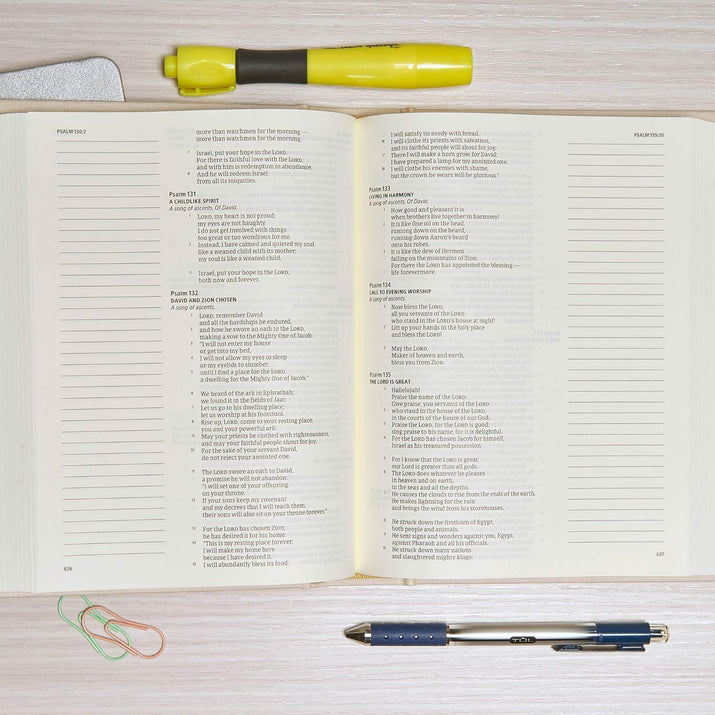 Sharpie
PSALM 130:7
more than watchmen for the morning —
more than watchmen for the morning.
7 Israel, put your hope in the LORD.
For there is faithful love with the LORD,
and with him is redemption in abundance.
8 And he will redeem Israel
from all its iniquities.
Psalm 131
A CHILDLIKE SPIRIT
A song of ascents. Of David.
1 LORD, my heart is not proud;
my eyes are not haughty.
I do not get involved with things
too great or too wondrous for me.
2 Instead, I have calmed and quieted my soul
like a weaned child with its mother;
my soul is like a weaned child.
3 Israel, put your hope in the LORD,
both now and forever.
Psalm 132
DAVID AND ZION CHOSEN
A song of ascents.
1 LORD, remember David
and all the hardships he endured,
2 and how he swore an oath to the LORD,
making a vow to the Mighty One of Jacob:
3 "I will not enter my house
or get into my bed,
4 I will not allow my eyes to sleep
or my eyelids to slumber
5 until I find a place for the LORD,
a dwelling for the Mighty One of Jacob."
6 We heard of the ark in Ephrathah;
we found it in the fields of Jaar.
7 Let us go to his dwelling place;
let us worship at his footstool.
8 Rise up, LORD, come to your resting place,
you and your powerful ark.
9 May your priests be clothed with righteousness,
and may your faithful people shout for joy.
10 For the sake of your servant David,
do not reject your anointed one.
11 The LORD swore an oath to David,
a promise he will not abandon:
"I will set one of your offspring
on your throne.
12 If your sons keep my covenant
and my decrees that I will teach them,
their sons will also sit on your throne forever."
13 For the LORD has chosen Zion;
he has desired it for his home:
14 "This is my resting place forever;
I will make my home here
because I have desired it.
15 I will abundantly bless its food;
636
PSALM 135:10
I will satisfy its needy with bread.
16 I will clothe its priests with salvation,
and its faithful people will shout for joy.
17 There I will make a horn grow for David;
I have prepared a lamp for my anointed one.
18 I will clothe his enemies with shame,
but the crown he wears will be glorious."
Psalm 133
LIVING IN HARMONY
A song of ascents. Of David.
1 How good and pleasant it is
when brothers live together in harmony!
2 It is like fine oil on the head,
running down on the beard,
running down Aaron's beard
onto his robes.
3 It is like the dew of Hermon
falling on the mountains of Zion.
For there the LORD has appointed the blessing —
life forevermore.
Psalm 134
CALL TO EVENING WORSHIP
A song of ascents.
1 Now bless the LORD,
all you servants of the LORD
who stand in the LORD's house at night!
2 Lift up your hands in the holy place
and bless the LORD!
3 May the LORD,
Maker of heaven and earth,
bless you from Zion.
Psalm 135
THE LORD IS GREAT
1 Hallelujah!
Praise the name of the LORD.
Give praise, you servants of the LORD
2 who stand in the house of the LORD,
in the courts of the house of our God.
3 Praise the LORD, for the LORD is good;
sing praise to his name, for it is delightful.
4 For the LORD has chosen Jacob for himself,
Israel as his treasured possession.
5 For I know that the LORD is great;
our Lord is greater than all gods.
6 The LORD does whatever he pleases
in heaven and on earth,
in the seas and all the depths.
7 He causes the clouds to rise from the ends of the earth.
He makes lightning for the rain
and brings the wind from his storehouses.
8 He struck down the firstborn of Egypt,
both people and animals.
9 He sent signs and wonders against you, Egypt,
against Pharaoh and all his officials.
10 He struck down many nations
and slaughtered mighty kings:
637
TUL